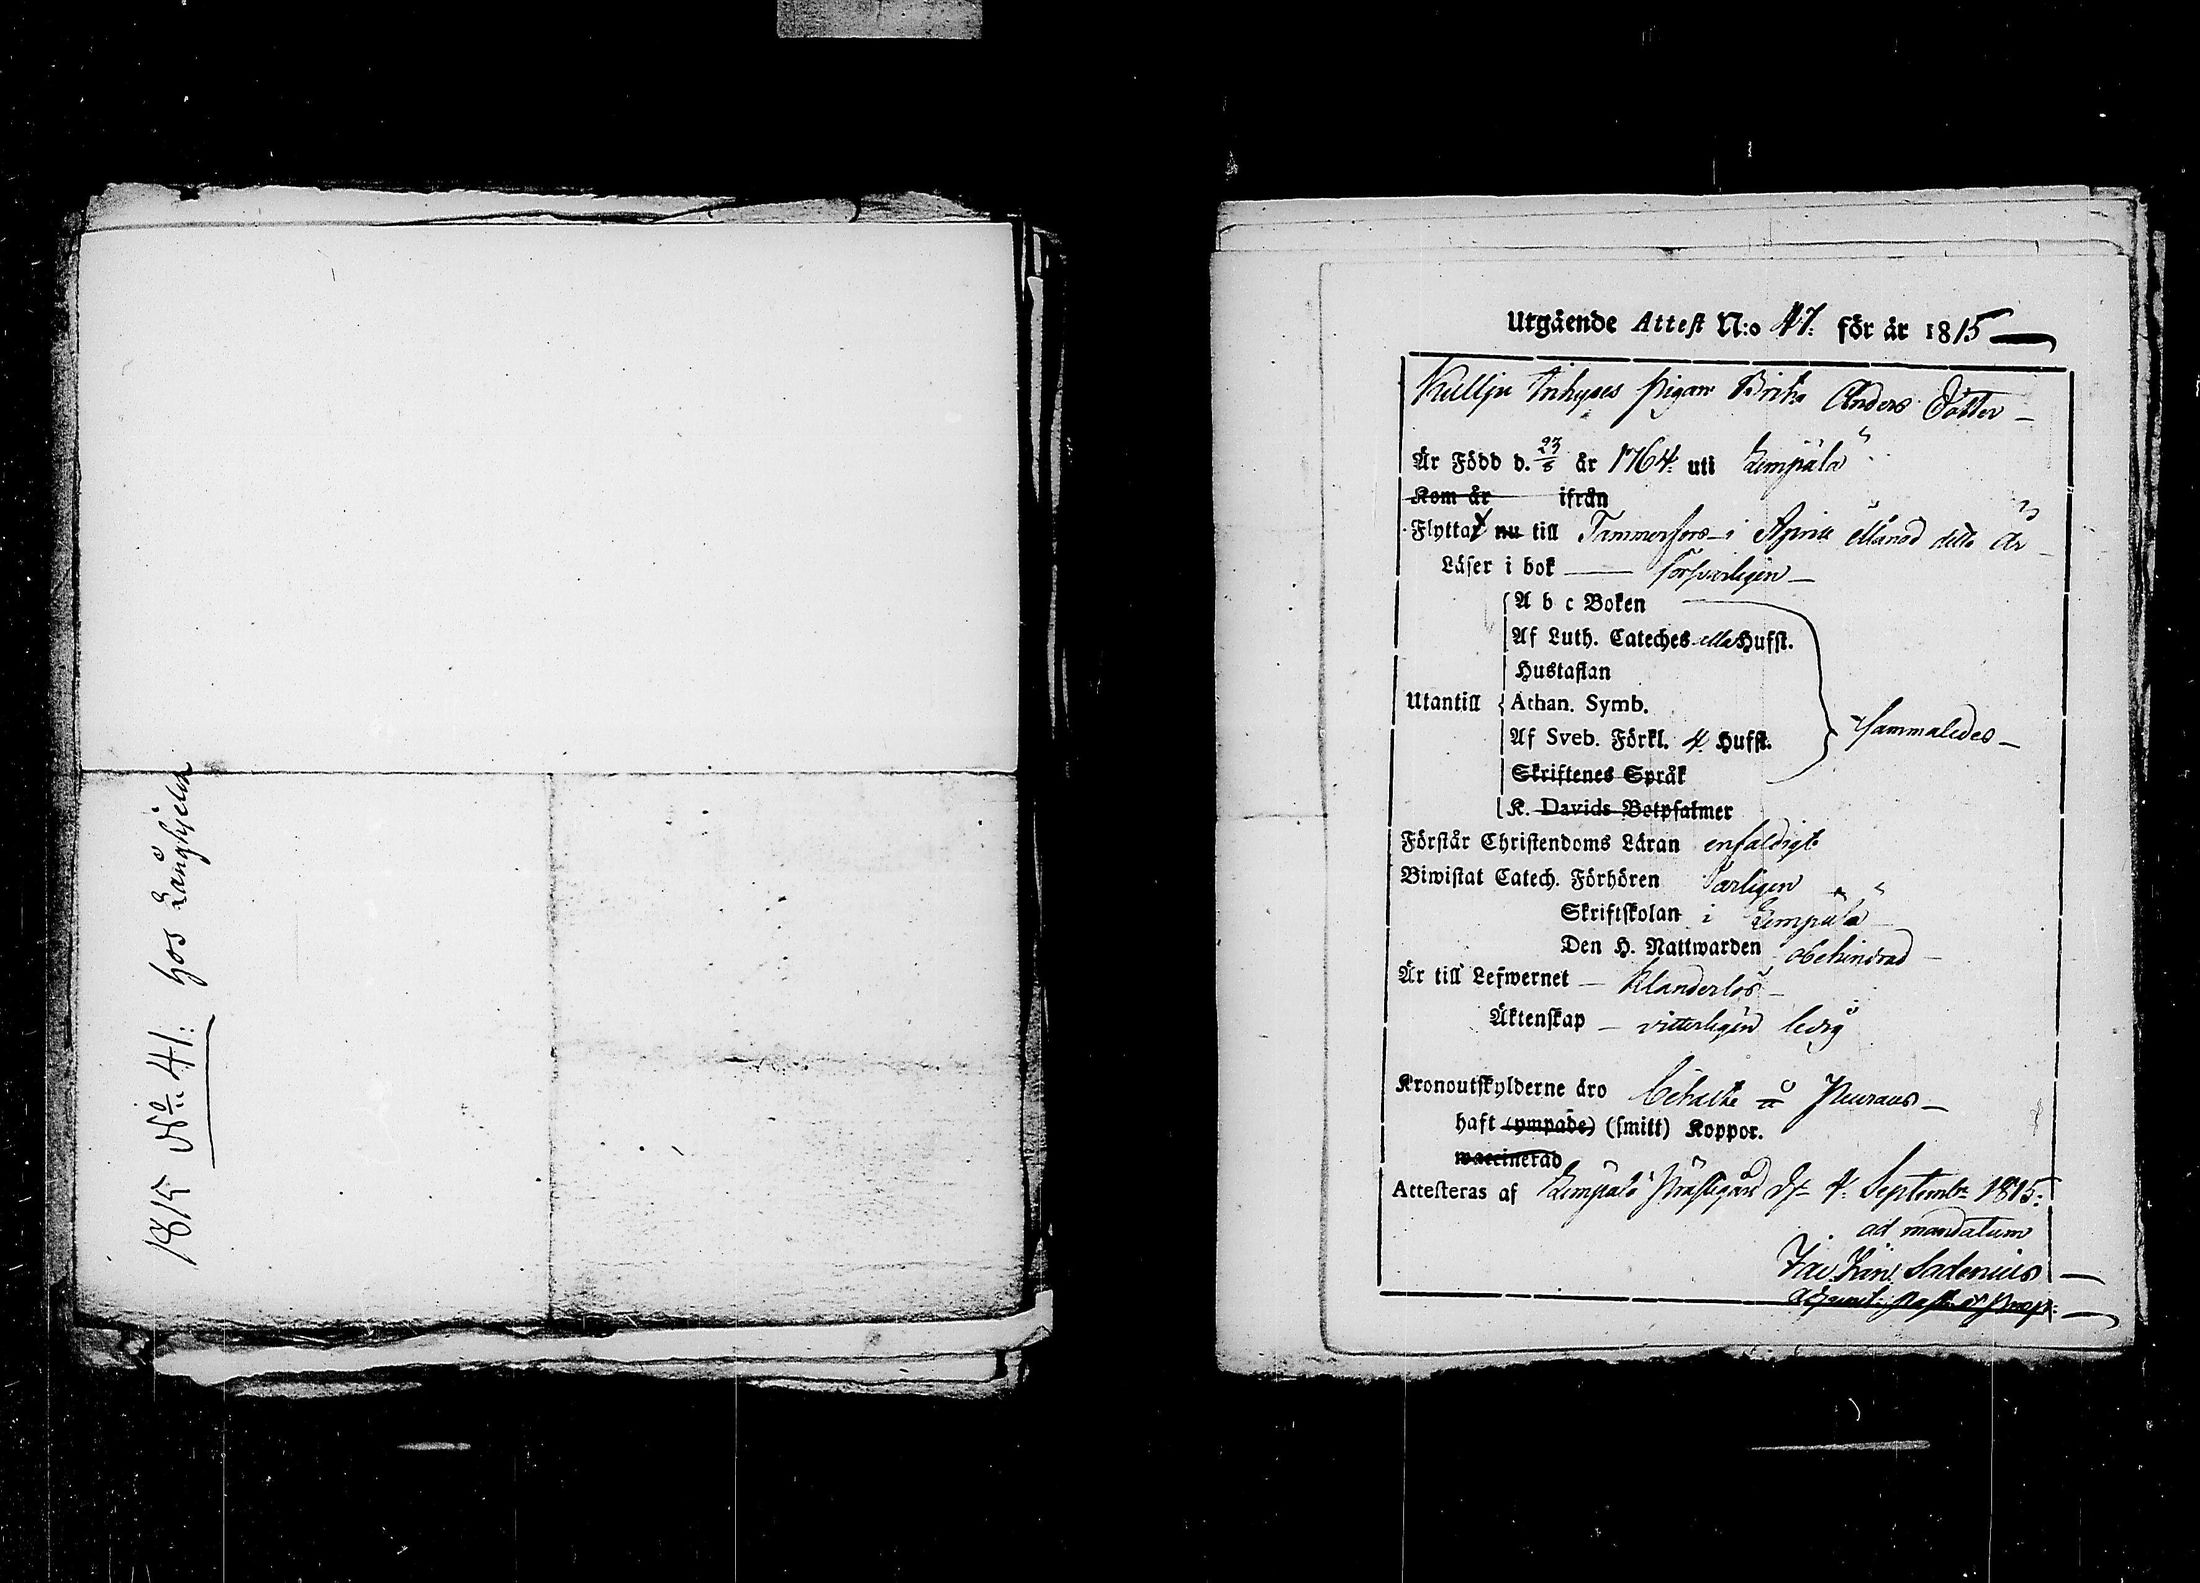 1815 No 41: hos Långhjelm
Utgående Attest N:o 47. för år 1815
Kullju Inhyses Pigan Brita Anders Dotter
Är Född d. 23/6 år 1764. uti Lempälä
Kom år ifrån
Flyttat nu till Tammerfors i April Månad detta År
Läser i bok försvarligen
A b c Boken
Af Luth. Cateches alla Hufst.
Hustaflan
Utantill Athan. Symb.
Af Sveb. Förkl. 4 Hufst. sammaledes
Skriftenes Språk
K. Davids Botpsalmer
Förstår Christendoms Läran enfaldigt
Biwistat Catech. Förhören årligen
Skriftskolan i Lempälä
Den H. Nattwarden obehindrad
Är till Lefwernet klanderlös
Äktenskap vitterligen ledig
Kronoutskylderne äro betalte å
haft (ympade) (smitt) Koppor.
waccinerad
Attesteras af Lempälä Prästegård d. 4. Septembr 1815.
ad mandatum
Sadenius